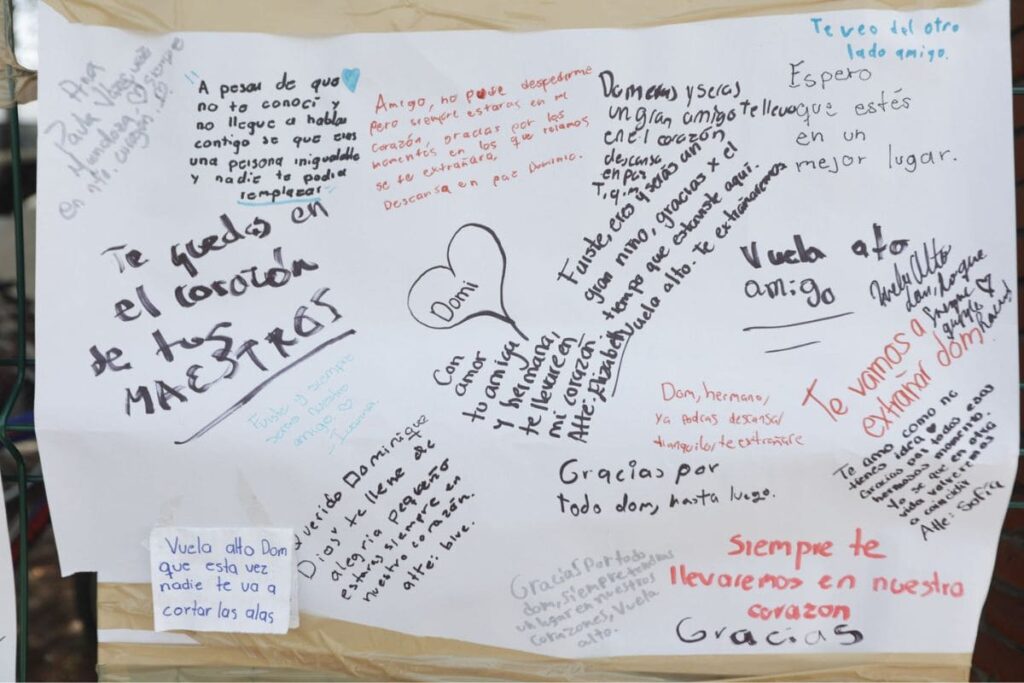 Te veo del otro
lado amigo.
Ana
Paula Vlas
Mandora siempre
en ntro. corazón
A pesar de que
no te conocí y
no llegue a hablar
contigo se que eres
una persona inigualable
y nadie te podra
remplazar
Amigo, no pude despedirme
pero siempre estaras en mi
corazón, gracias por los
momentos en los que reíamos
se te extrañará,
Descansa en paz Dominic.
Dom eras y seras
un gran amigo te llevo
en el corazón
descansa
en paz
T.q.m
Espero
que estés
en un
mejor lugar.
Te quedas en
el corazón
de tus
MAESTROS
Domi
Con
amor
tu amiga
y hermana,
te llevare en
mi corazón
Atte: Elizabeth
Fuiste, eres y serás un
gran niño, gracias x el
tiempo que estuviste aquí.
Vuela alto. te extrañaremos
Vuela alto
amigo
Vuela Alto
dom, lo que
siempre
Te vamos a
extrañar dom.
Fuiste y siempre
seras nuestro
amigo
Dom, hermano,
ya podras descansar
tranquilo, te extrañare
Te amo como no
tienes idea
Gracias por todos esos
hermosos momento.
Yo se que en otra
vida volveremos
a coincidir
Atte: Sofía
Querido Dominique
Dios te llene de
alegria pequeño
estaras siempre en
nuestro corazón.
atte: blue.
Gracias por
todo dom, hasta luego.
Vuela alto Dom
que esta vez
nadie te va a
cortar las alas
Gracias por todo
dom, siempre tendras
un lugar en nuestros
corazones, Vuela
alto.
Siempre te
llevaremos en nuestro
corazon
Gracias